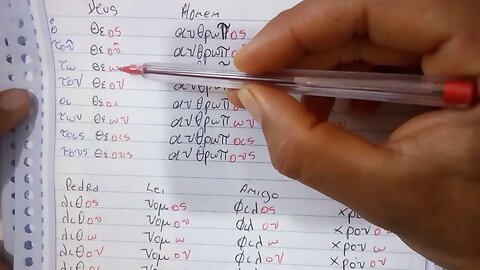 Deus Homem
ὁ θεος ανθρωπος
τοῦ θεοῦ
τω θεω
τον θεον ανθρωπ
οι θεοι ανθρωπ
των θεων ανθρωπων
τοις θεοις ανθρωποις
τους θεους ανθρωπους
Pedra Lei Amigo
λιθος νομος φιλος χρον
λιθου νομου φιλου χρονου
λιθω νομω φιλω χρονω
λιθον νομον φιλον χρονον